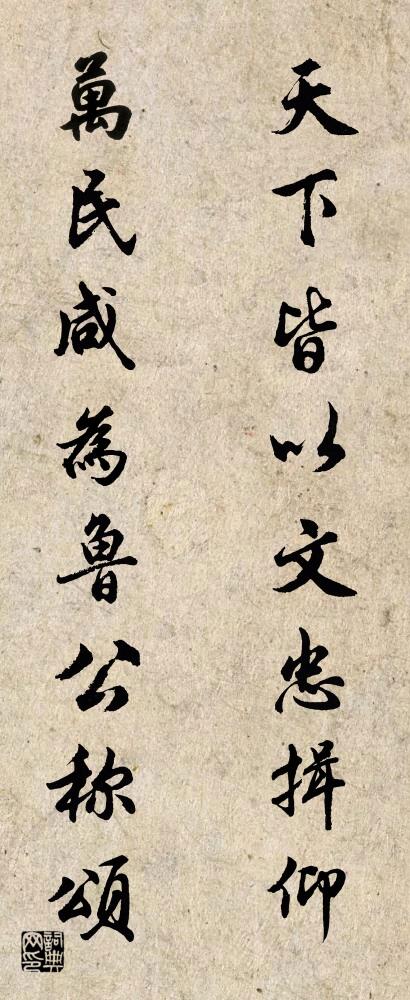 天下皆以文忠揖仰
萬民咸為魯公称頌
詞典网印